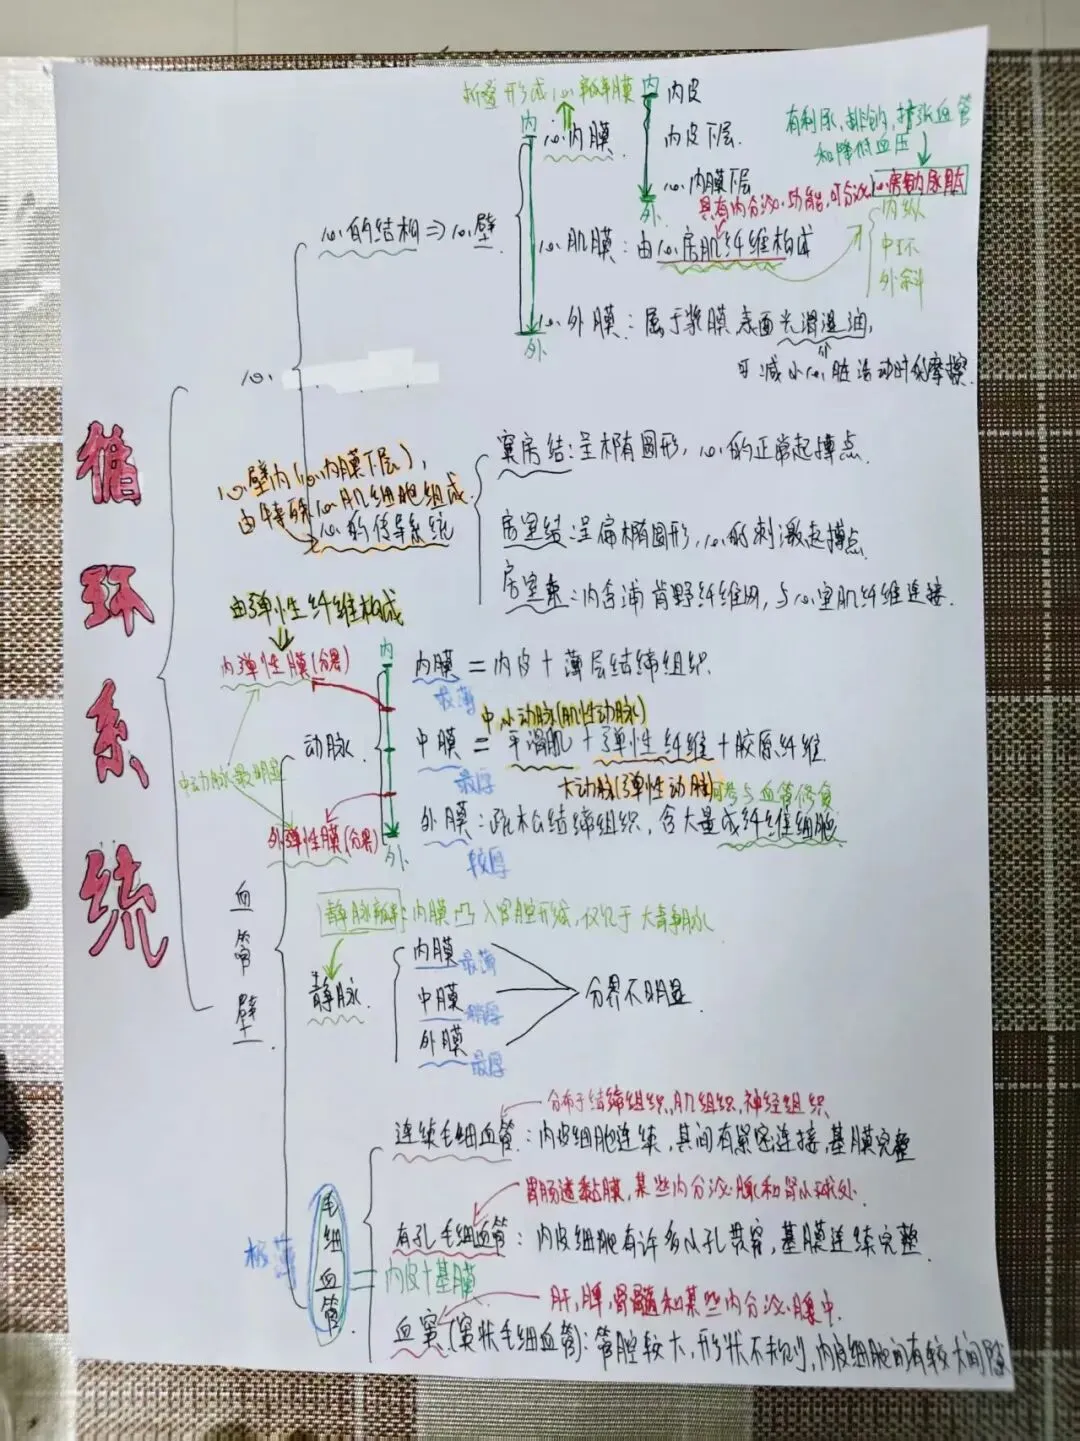 循环系统
折叠形成心瓣膜
内
内皮
心内膜
内皮下层.
心内膜下层
外
有利尿、排钠、扩张血管
和降低血压
具有内分泌功能,可分泌心房钠尿肽
心的结构⇒心壁
心肌膜:由心房肌纤维构成
内纵
中环
外斜
心外膜:属于浆膜表面光滑湿油,
可减小心脏活动时的摩擦.
内
外
心
心壁内(心内膜下层),
由特殊心肌细胞组成
心的传导系统
窦房结:呈椭圆形,心的正常起搏点.
房室结:呈扁椭圆形,心的刺激起搏点.
房室束:内含浦肯野纤维网,与心室肌纤维连接.
由弹性纤维构成
内弹性膜(分界)
内
内膜=内皮+薄层结缔组织.
最薄
中小动脉(肌性动脉)
动脉
中膜=平滑肌+弹性纤维+胶原纤维
最厚
中动脉最明显
大动脉(弹性动脉)
可参与血管修复
外弹性膜(分界)
外
外膜:疏松结缔组织,含大量成纤维细胞
较厚
血管壁
静脉瓣:内膜凸入管腔形成,仅见于大静脉
静脉
内膜最薄
中膜稍厚
外膜最厚
分界不明显
分布于结缔组织,肌组织,神经组织
连续毛细血管:内皮细胞连续,其间有紧密连接,基膜完整
胃肠道黏膜,某些内分泌腺和肾小球处.
毛细血管
极薄
有孔毛细血管:内皮细胞有许多小孔贯穿,基膜连续完整.
=内皮+基膜
肝,脾,骨髓和某些内分泌腺中.
血窦(窦状毛细血管):管腔较大,形状不规则,内皮细胞间有较大间隙